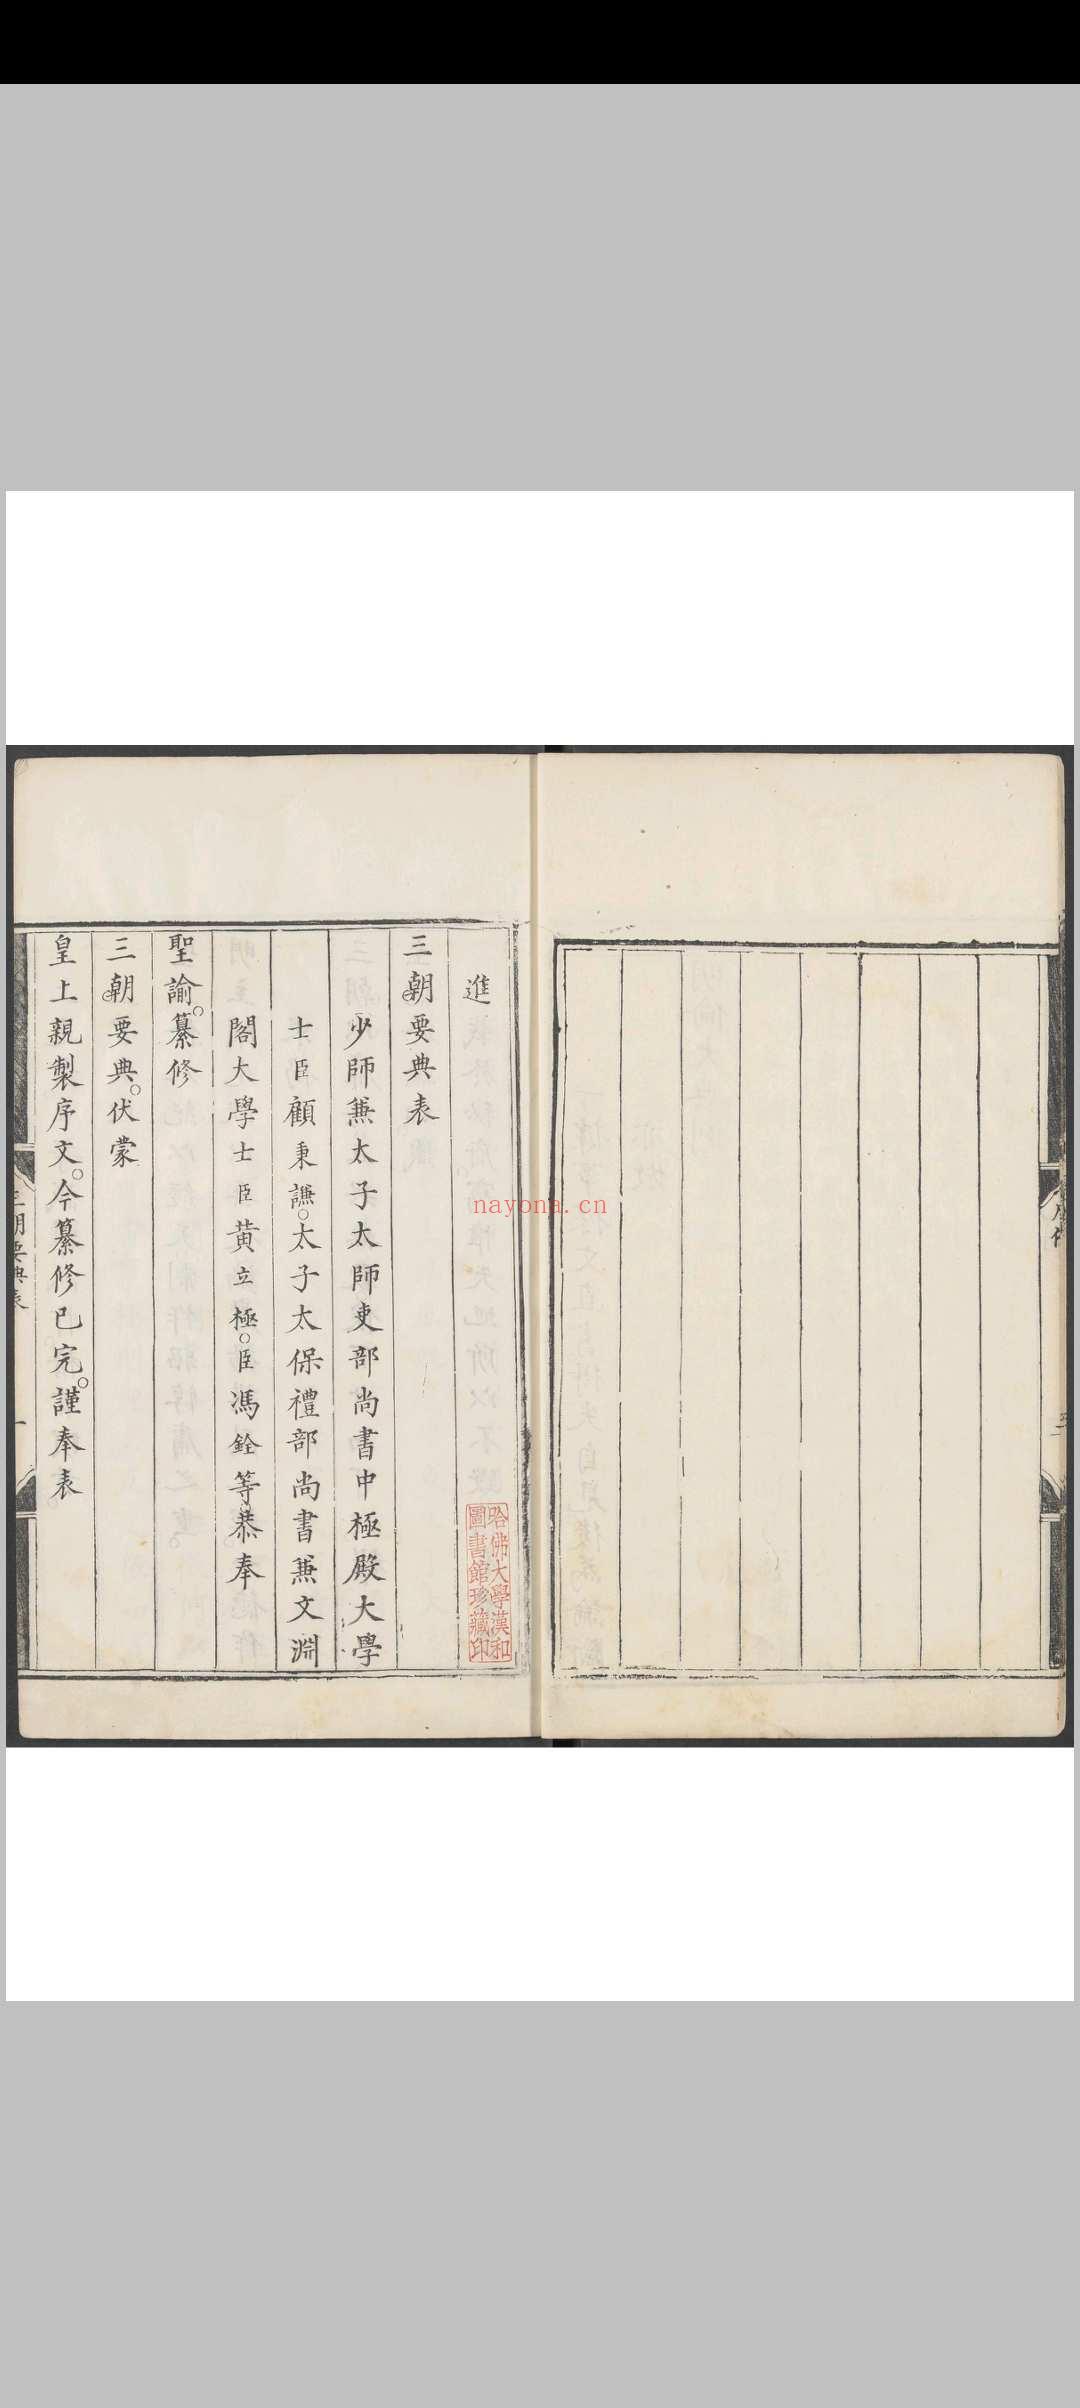 進
三朝要典表
少師兼太子太師吏部尚書中極殿大學
士臣顧秉謙○太子太保禮部尚書兼文淵
閣大學士臣黃立極○臣馮銓等○恭奉
聖諭○纂修
三朝要典○伏蒙
皇上親製序文○今纂修已完○謹奉表
三朝要典表
一
哈佛大學漢和
圖書館珍藏印
nayona.cn